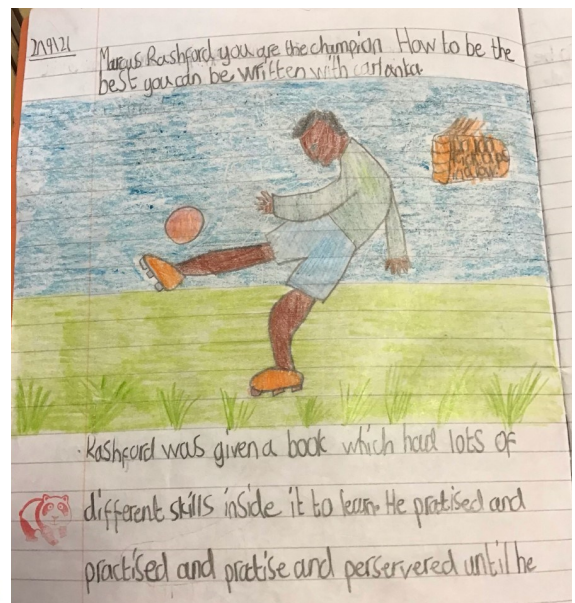 21/9/21
Marcus Rashford you are the champion How to be the
best you can be written with carl anka.
Rashford was given a book which had lots of
different skills inside it to learn. He pratised and
practised and pratise and perservered until he